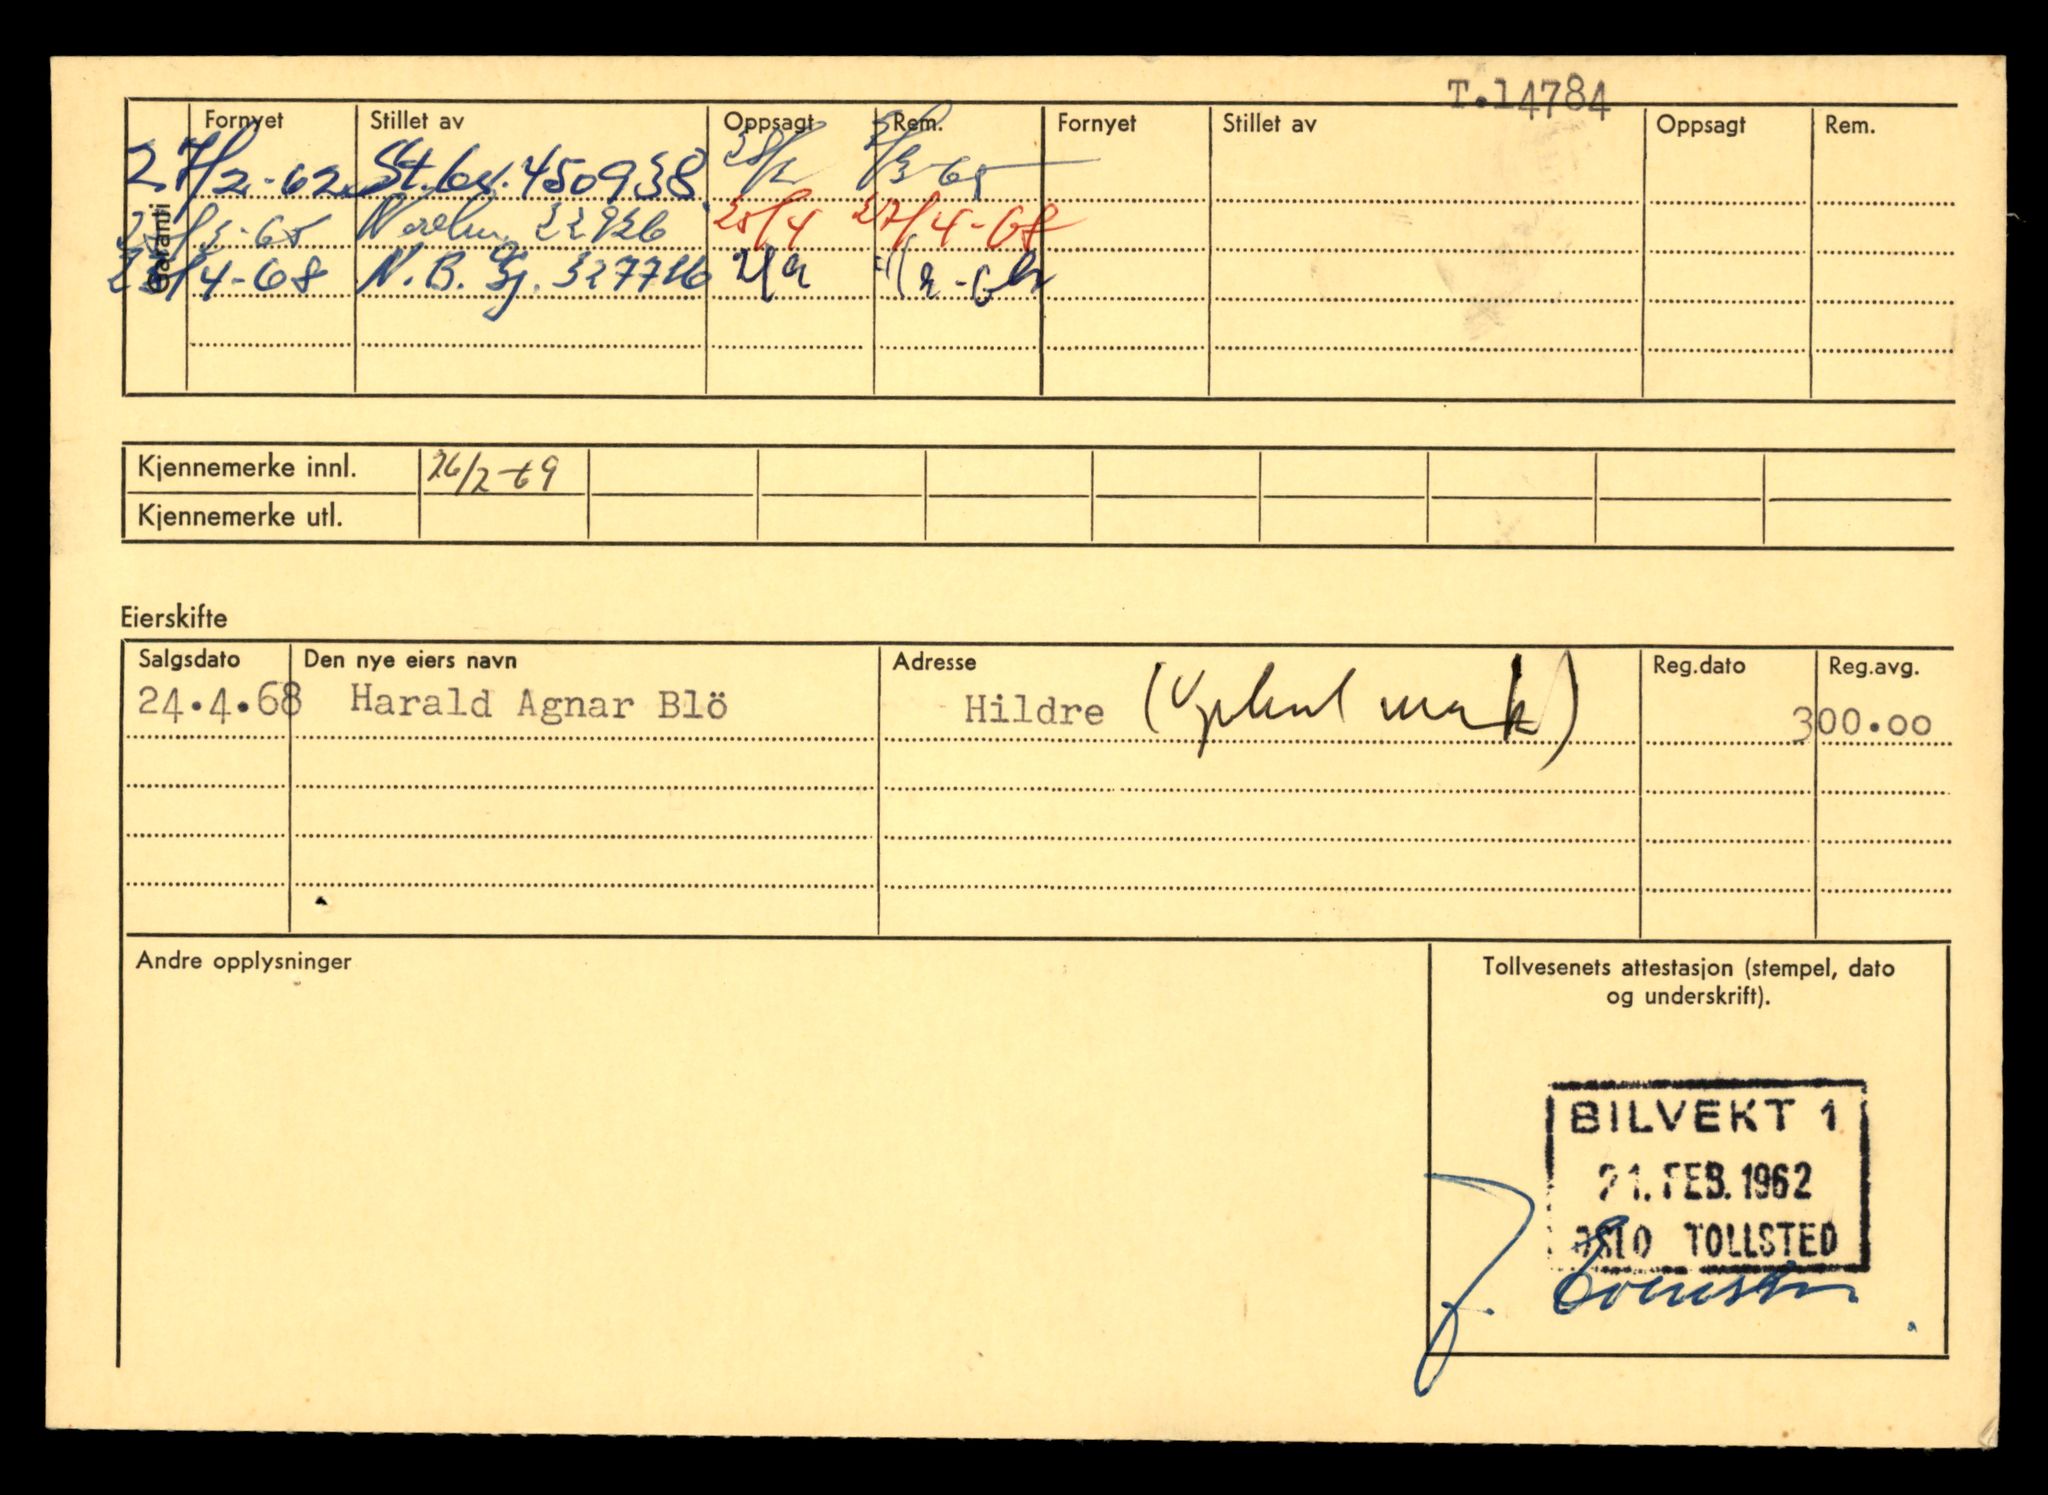 T.14784
Fornyet Stillet av Oppsagt Rem. Fornyet Stillet av Oppsagt Rem.
Garanti
27/2-62 St.br. 450938 28/2 2/3-65
/3-65 22926 25/4 27/4-68
25/4-68 N.B. Gj. 327716
Kjennemerke innl. 26/2-69
Kjennemerke utl.
Eierskifte
Salgsdato Den nye eiers navn Adresse Reg.dato Reg.avg.
24.4.68 Harald Agnar Blö Hildre 300.oo
Andre opplysninger
Tollvesenets attestasjon (stempel, dato
og underskrift).
BILVEKT 1
21. FEB. 1962
OSLO TOLLSTED